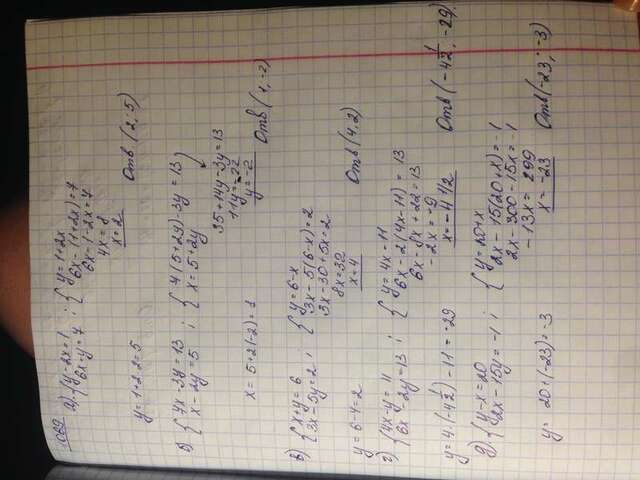 1069
а) { y-2x=1 ; { y=1+2x
6x-y=7 6x-(1+2x)=7
6x-1-2x=7
4x=8
x=2
y=1+2·2=5 Отв (2; 5)
б) { 7x-3y=13 ; { 7(5+2y)-3y=13
x-2y=5 x=5+2y
35+14y-3y=13
11y=-22
y=-2
x=5+2(-2)=1 Отв (1,-2)
в) { x+y=6 ; { y=6-x
3x-5y=2 3x-5(6-x)=2
3x-30+5x=2
8x=32
x=4
y=6-4=2 Отв (4,2)
г) { 4x-y=11 ; { y=4x-11
6x-2y=13 6x-2(4x-11)=13
6x-8x+22=13
-2x=-9
x=-4 1/2
y=4·(-4 1/2)-11=-29 Отв (-4 1/2; -29)
д) { y-x=20 ; { y=20+x
2x-15y=-1 2x-15(20+x)=-1
2x-300-15x=-1
-13x=299
x=-23
y=20+(-23)=-3 Отв (-23; -3)